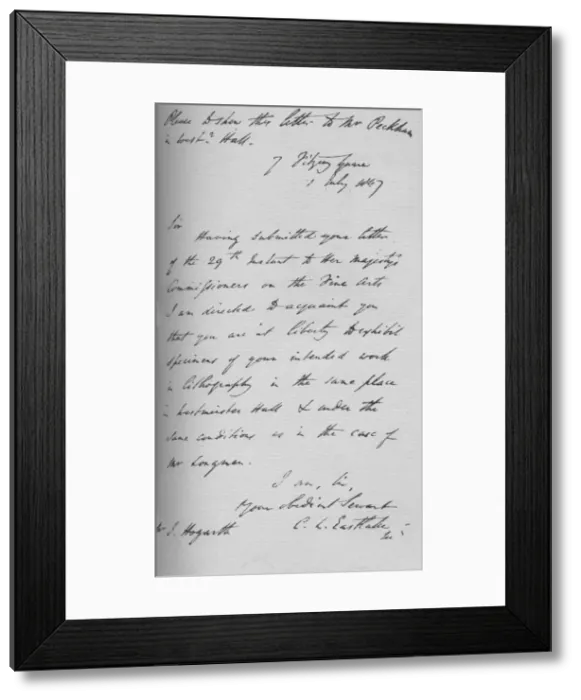 Please to shew this letter to Mr Peckham
in West.r Hall.
7 Fitzroy Square
1 July 1847
Sir
Having submitted your letter
of the 29th Instant to Her Majesty's
Commissioners on the Fine Arts
I am directed to acquaint you
that you are at liberty to exhibit
specimens of your intended work
in lithography in the same place
in Westminster Hall & under the
same conditions as in the case of
Mr Longman.
I am, Sir,
Your obedient Servant
C. L. Eastlake
Sec
Mr J. Hogarth